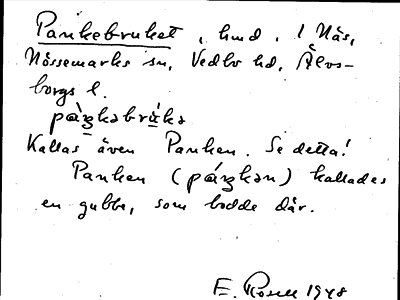 Pankebruket, hmd. i Näs,
Nössemarks sn, Vedbo hd, Älvs-
borgs l.
Kallas även Panken. Se detta!
Panken kallades
en gubbe, som bodde där.
E. Rosell 1948